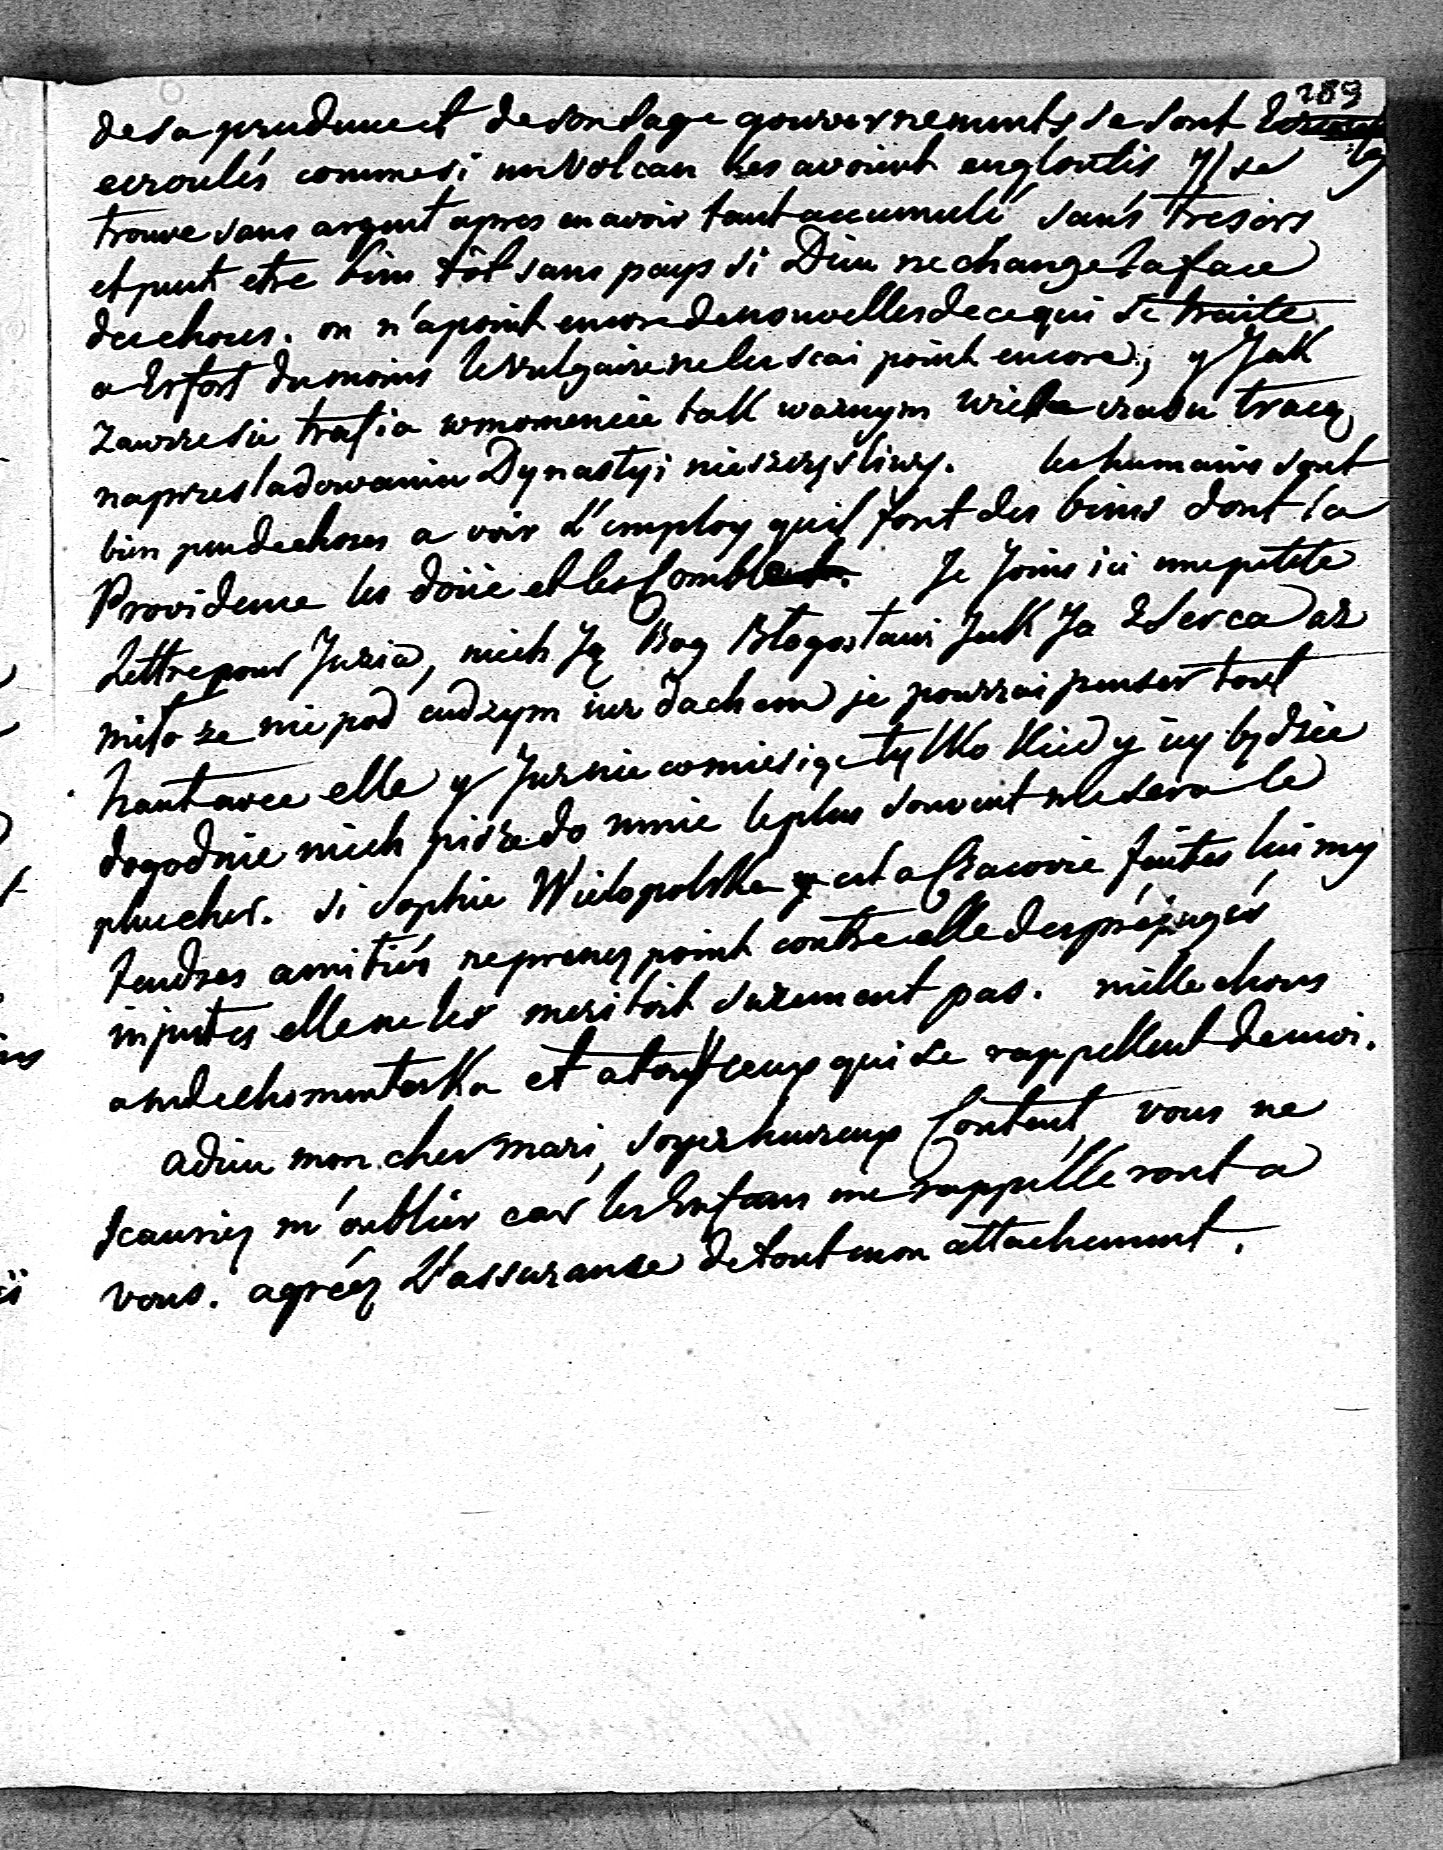 289
de sa prudence et de son sage gouvernements se sont
ecroulés comme si un Volcan les avoient engloutis Il se
trouve sans argent apres en avoir tant accumulé sans tresors
et peut etre bien tôt sans pays si Dieu ne change la face
des choses. on n'a point encore de nouvelles de ce qui se traite
a Erfort du moins le vulgaire ne les scai point encore, y Jak
zawsze sie trafia w momencie tak waznym wiele czasu tracą
na przesladowaniu Dynastyi nieszczęśliwy. les humains sont
bien peu de choses a voir l'employ qu'il font des biens dont la
Providence les doüe et les Comble. Je Joins ici une petite
Lettre pour Juzia, niech Ją Bog Błogosławi Jak Ja z Serca az
miło ze nie pod cudzym iuz dachem je pourrai penser tout
haut avec elle y Juz nie co miesiąc tylko Kiedy iey będzie
dogodnie niech pisze do mnie le plus souvent me sera le
plus cher. si Sophie Wielopolska est a Cracovie faites lui my
tendres amitiés ne prenez point contre elle des préjugés
injustes elle ne les meritoit surement pas. mille choses
a mdechomentoska et a tout ceux qui se rappellent de moi.
adieu mon cher mari, soyez heureux Content, vous ne
scauriez m'oublier car les Enfans me rappelleront a
vous. agréez L'assurance de tout mon attachement.